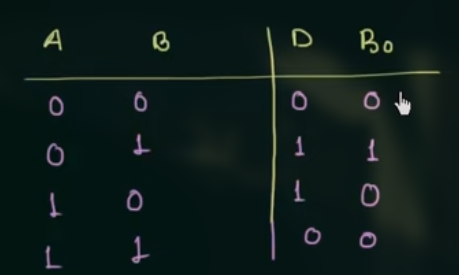 A B D B0
0 0 0 0
0 1 1 1
1 0 1 0
1 1 0 0